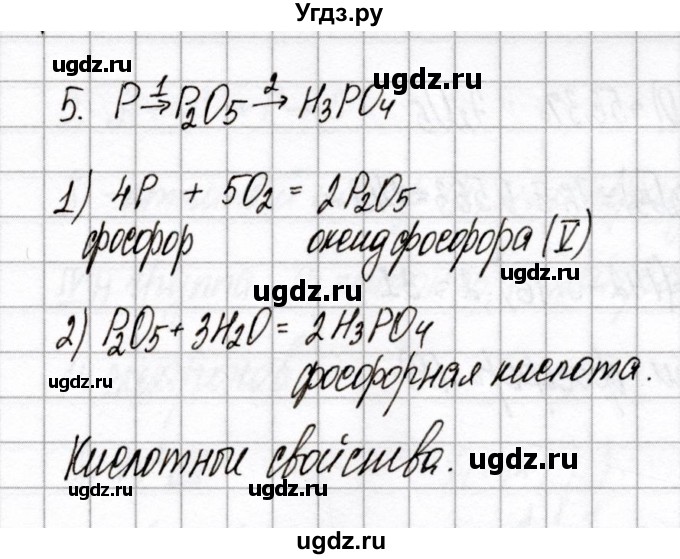 Угдз.ру
ugdz.ru
5. P →¹ P₂O₅ →² H₃PO₄
ugdz.ru
ugdz.ru
1) 4P + 5O₂ = 2P₂O₅
фосфор оксид фосфора (V)
ugdz.ru
ugdz.ru
2) P₂O₅ + 3H₂O = 2H₃PO₄
ugdz.ru
фосфорная кислота.
Кислотные свойства.
ugdz.ru
ugdz.ru
ugdz.ru
ugdz.ru